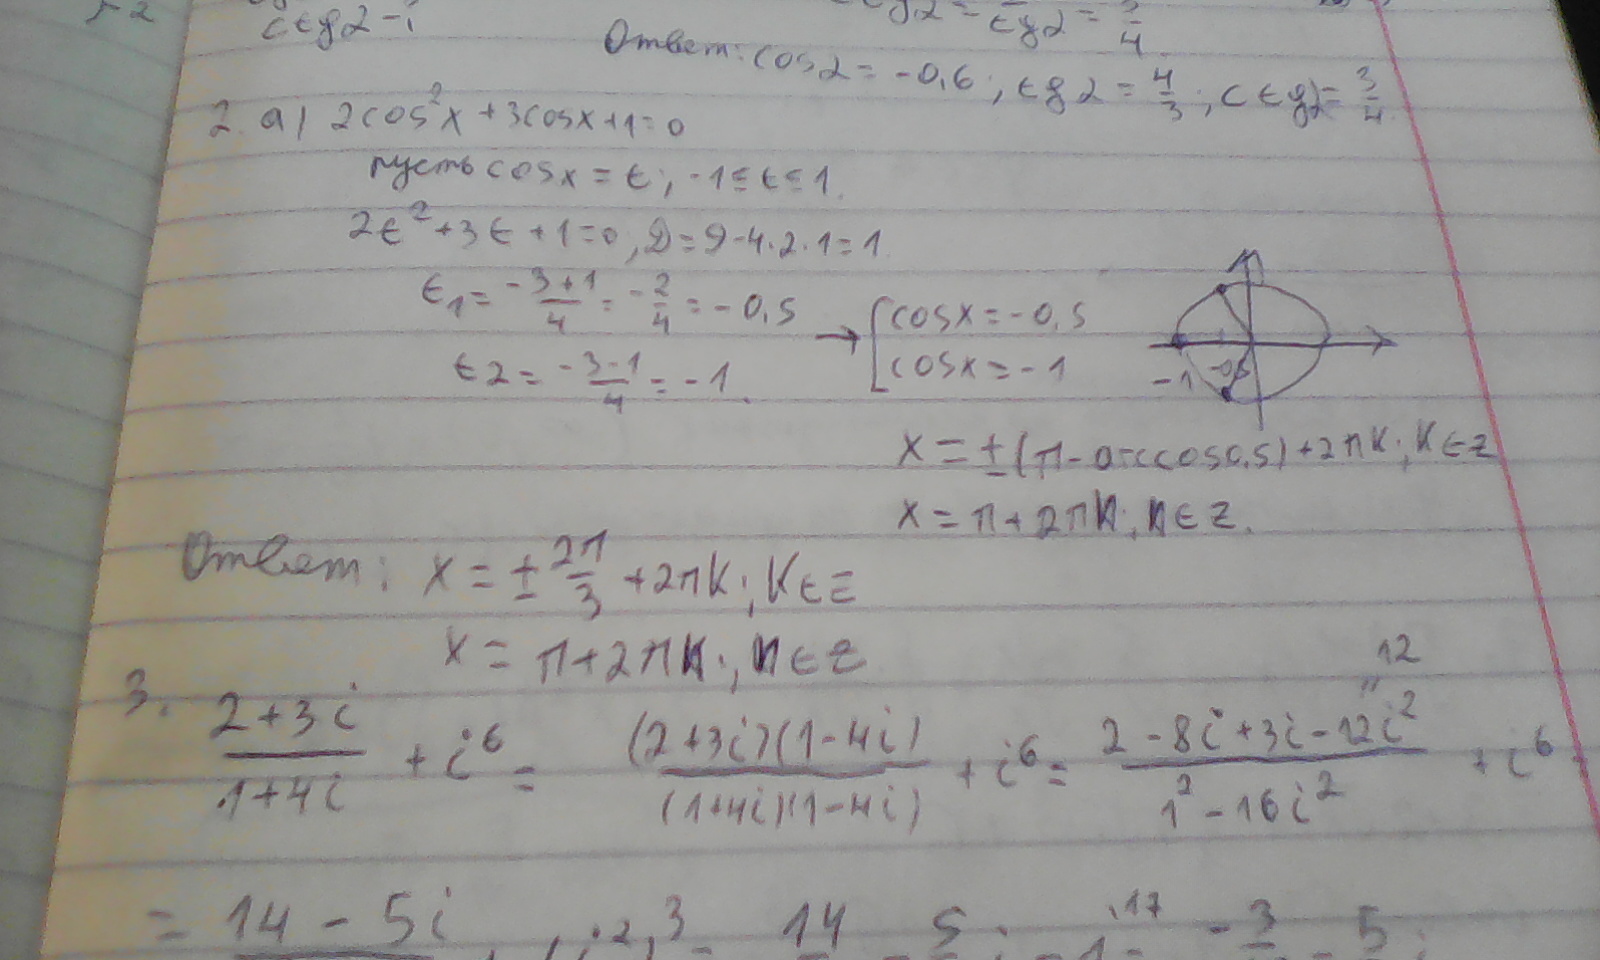 ctg2 =
tg2 = 4
Ответ: cos2 = -0,6; tg2 = 4/3; ctg2 = 3/4
2. а) 2cos²x + 3cosx + 1 = 0
пусть cosx = t; -1 ≤ t ≤ 1.
2t² + 3t + 1 = 0, D = 9 - 4·2·1 = 1
t1 = (-3+1)/4 = -2/4 = -0,5
t2 = (-3-1)/4 = -1.
→ [ cosx = -0,5
cosx = -1
-1 -0,5
x = ±(π - arccos0,5) + 2πK; K ∈ Z
x = π + 2πn; n ∈ Z.
Ответ: x = ± 2π/3 + 2πK; K ∈ Z
x = π + 2πn; n ∈ Z
12
3. (2+3i)/(1+4i) + i⁶ = (2+3i)(1-4i)/(1+4i)(1-4i) + i⁶ = (2-8i+3i-12i²)/(1²-16i²) + i⁶
= 14 - 5i